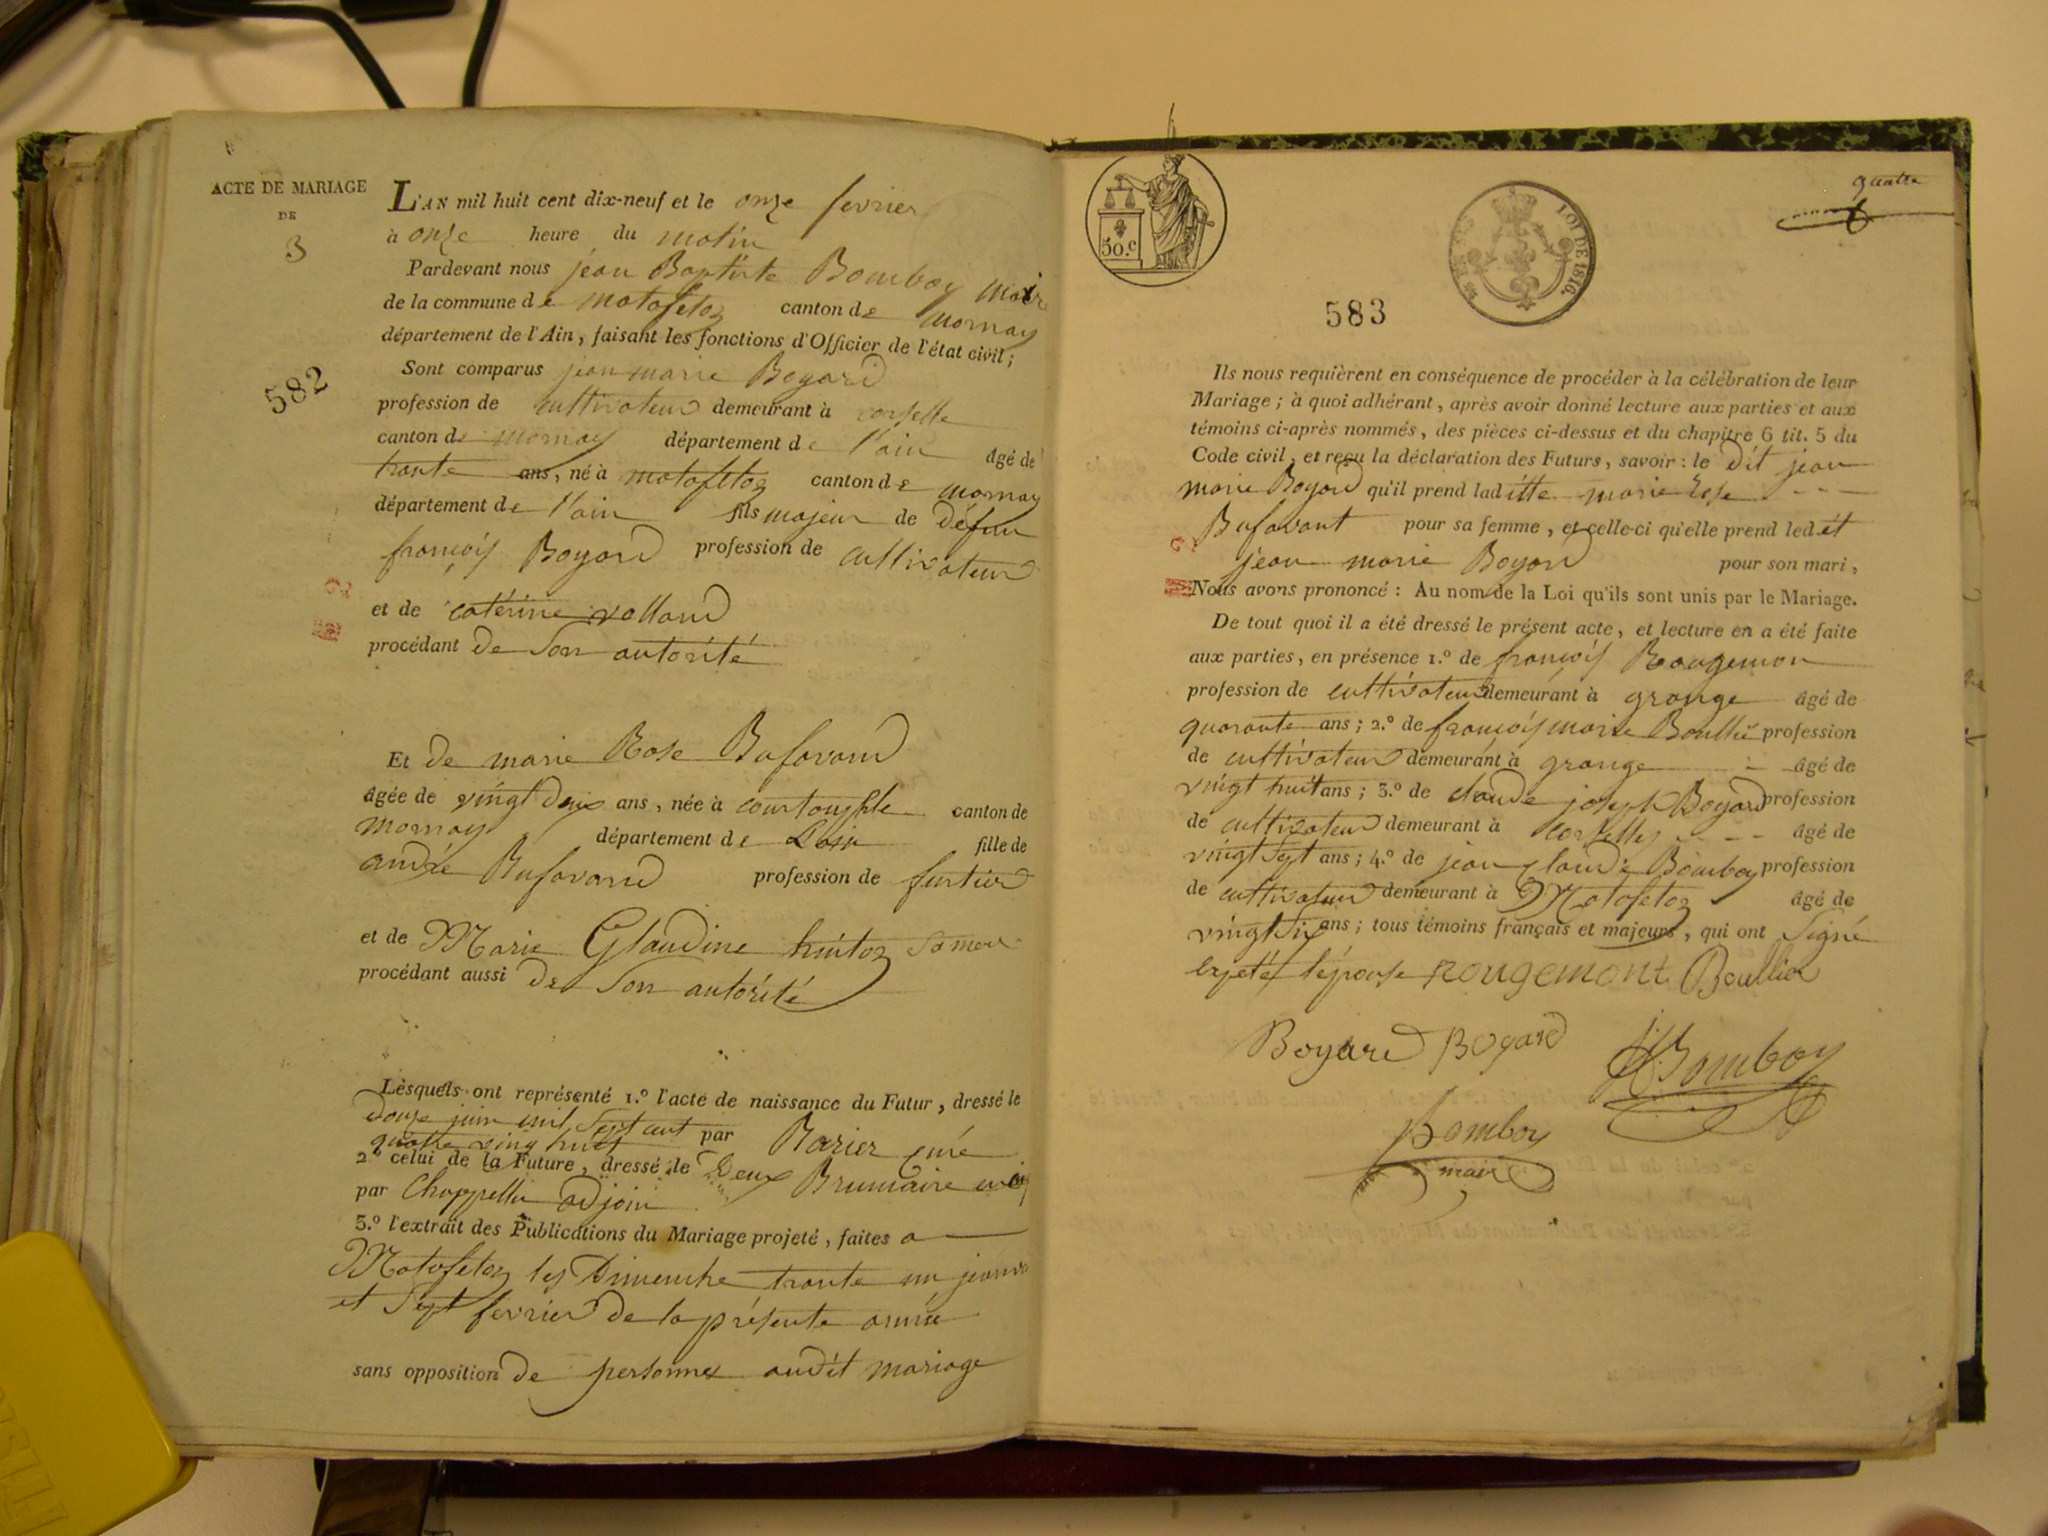 ACTE DE MARIAGE
DE
3
582
L'AN mil huit cent dix-neuf et le onze fevrier
à onze heure du matin
Pardevant nous jean Baptiste Bomboy maire
de la commune de matafelon canton de mornay
département de l'Ain, faisant les fonctions d'Officier de l'état civil;
Sont comparus jean marie Boyard
profession de cultivateur demeurant à corcelle
canton de mornay département de l'ain âgé de
trante ans, né à matafelon canton de mornay
département de l'ain fils majeur de défun
françois Boyard profession de cultivateur
et de catérine volland
procédant de son autorité
Et de marie Rose Bafavand
âgée de vingt deux ans, née à courtouphle canton de
mornay département de Lain fille de
andré Bafavand profession de
et de Marie Glaudine
procédant aussi de son autorité
Lesquels ont représenté 1.º l'acte de naissance du Futur, dressé le
douze juin mil sept cent
quatre ving huet par curé
2.º celui de la Future, dressé le deux Brumaire
par adjoin
3.º l'extrait des Publications du Mariage projeté, faites a
Matafelon les Dimenche trante un janvi
et sept fevrier de la présente année
sans opposition de personnes audit mariage
quatre
50.c
LOI DE 1816.
583
Ils nous requièrent en conséquence de procéder à la célébration de leur
Mariage; à quoi adhérant, après avoir donné lecture aux parties et aux
témoins ci-après nommés, des pièces ci-dessus et du chapitre 6 tit. 5 du
Code civil, et reçu la déclaration des Futurs, savoir: le dit jean
marie Boyard qu'il prend laditte marie Rose
Bafavant pour sa femme, et celle-ci qu'elle prend ledit
jean marie Boyard pour son mari,
Nous avons prononcé: Au nom de la Loi qu'ils sont unis par le Mariage.
De tout quoi il a été dressé le présent acte, et lecture en a été faite
aux parties, en présence 1.º de françois Rougemon
profession de cultivateur demeurant à grange âgé de
quarante ans; 2.º de françois marie Boullié profession
de cultivateur demeurant à grange âgé de
vingt huit ans; 3.º de claude joseph Boyard profession
de cultivateur demeurant à corcelles âgé de
vingt sept ans; 4.º de jean claude Bomboy profession
de cultivateur demeurant à Matafelon âgé de
vingt six ans; tous témoins français et majeurs, qui ont signé
l'épouse rougemont Boullier
Boyard Boyard Bomboy
Bomboy
maire